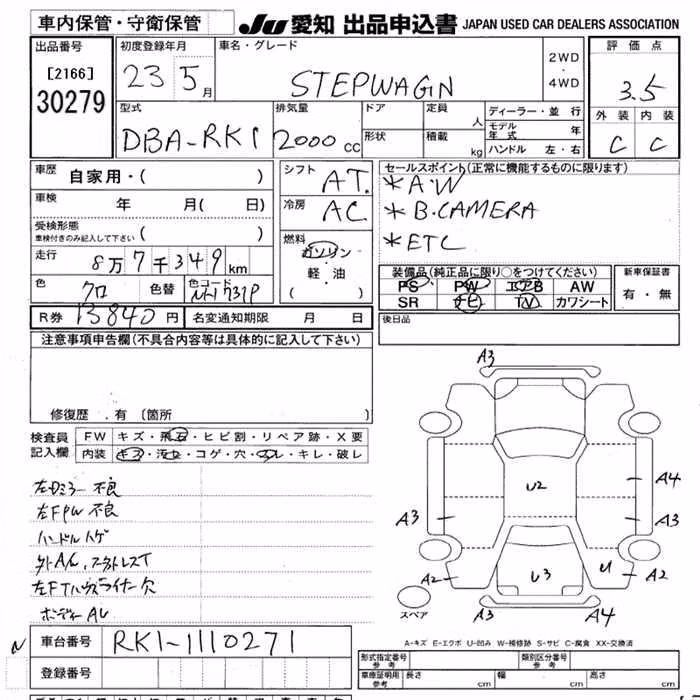 車内保管・守衛保管 JU 愛知 出品申込書 JAPAN USED CAR DEALERS ASSOCIATION
出品番号 初度登録年月 車名・グレード 2WD・4WD 評価点
[2166] 23 5月 STEPWAGN 3.5
30279 型式 排気量 ドア 定員 人 ディーラー・並行 外装 内装
DBA-RK1 2000cc 形状 積載 kg モデル年式 年 C C
ハンドル 左・右
車歴 自家用・( ) シフト AT. セールスポイント(正常に機能するものに限ります)
車検 年 月( 日) 冷房 AC *A・W
受検形態 *B・CAMERA
車検付きのみ記入して下さい( ) 燃料 *ETC
走行 8万7千349km ガソリン
軽・油
( )
装備品(純正品に限り○をつけてください) 新車保証書
色 クロ 色替 色コードNo. PS PW エアB AW 有・無
SR ナビ TV カワシート
R券 13840円 名変通知期限 月 日 後日品
注意事項申告欄(不具合内容等は具体的に記入して下さい)
修復歴 . 有 (箇所 )
検査員記入欄 FW キズ・飛石・ヒビ割・リペア跡・X要
内装 キズ・汚れ・コゲ・穴・スレ・キレ・破レ
左Dミラー不良
左FPW不良
ハンドルハゲ
左FTハウスライナー欠
A3
A4
A3
U2
A3
A2
U3
U
A2
A3
A4
スペア
A-キズ E-エクボ U-凹み W-補修跡 S-サビ C-腐食 XX-交換済
N 車台番号 RK1-1110271
登録番号
形式指定番号 参考 類別区分番号 参考
車庫証明用 参考 長さ cm 幅 cm 高さ cm